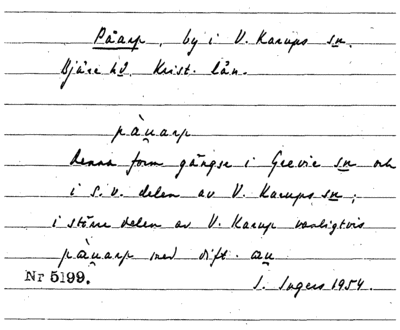 Påarp, by i V. Karups sn.
Bjäre hd. Krist. län.
pàu̯arp
denna form gängse i Grevie sn och
i s.v. delen av V. Karups sn;
i större delen av V. Karup vanligtvis
pàu̯arp med dift. au̯
Nr 5199.
I. Ingers 1954.